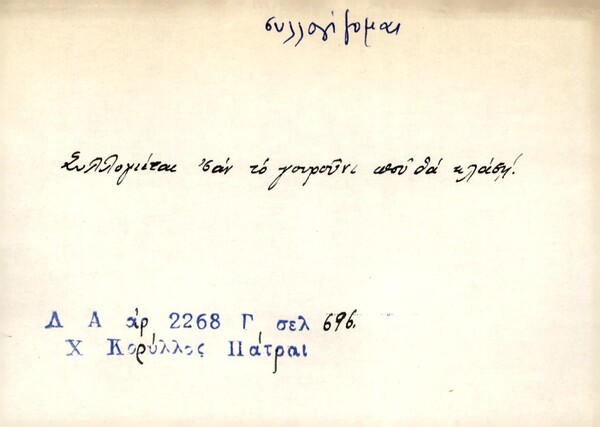 συλλογίζομαι
Συλλογιέται 'σάν τό γουροῦνι ποῦ θά κλάσῃ!
Λ Α ἀρ 2268 Γ, σελ 696.
Χ Κορύλλος Πάτραι